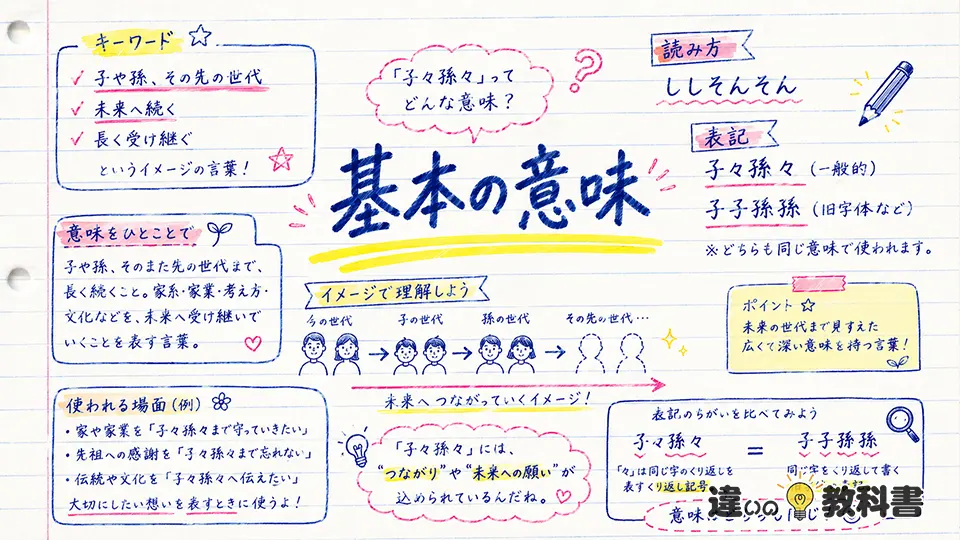 キーワード
子や孫、その先の世代
未来へ続く
長く受け継ぐ
というイメージの言葉!
「子々孫々」って
どんな意味?
読み方
ししそんそん
表記
子々孫々(一般的)
子子孫孫(旧字体など)
※どちらも同じ意味で使われます。
基本の意味
意味をひとことで
子や孫、そのまた先の世代まで、
長く続くこと。家系・家業・考え方・
文化などを、未来へ受け継いで
いくことを表す言葉。
イメージで理解しよう
今の世代
子の世代
孫の世代
その先の世代…
未来へつながっていくイメージ!
ポイント
未来の世代まで見すえた
広くて深い意味を持つ言葉!
使われる場面(例)
・家や家業を「子々孫々まで守っていきたい」
・先祖への感謝を「子々孫々まで忘れない」
・伝統や文化を「子々孫々へ伝えたい」
大切にしたい想いを表すときに使うよ!
「子々孫々」には、
“つながり”や“未来への願い”が
込められているんだね。
表記のちがいを比べてみよう
子々孫々 = 子子孫孫
「々」は同じ字のくり返しを
表すくり返し記号
同じ字をくり返して書く
意味は
同じ
違いの教科書